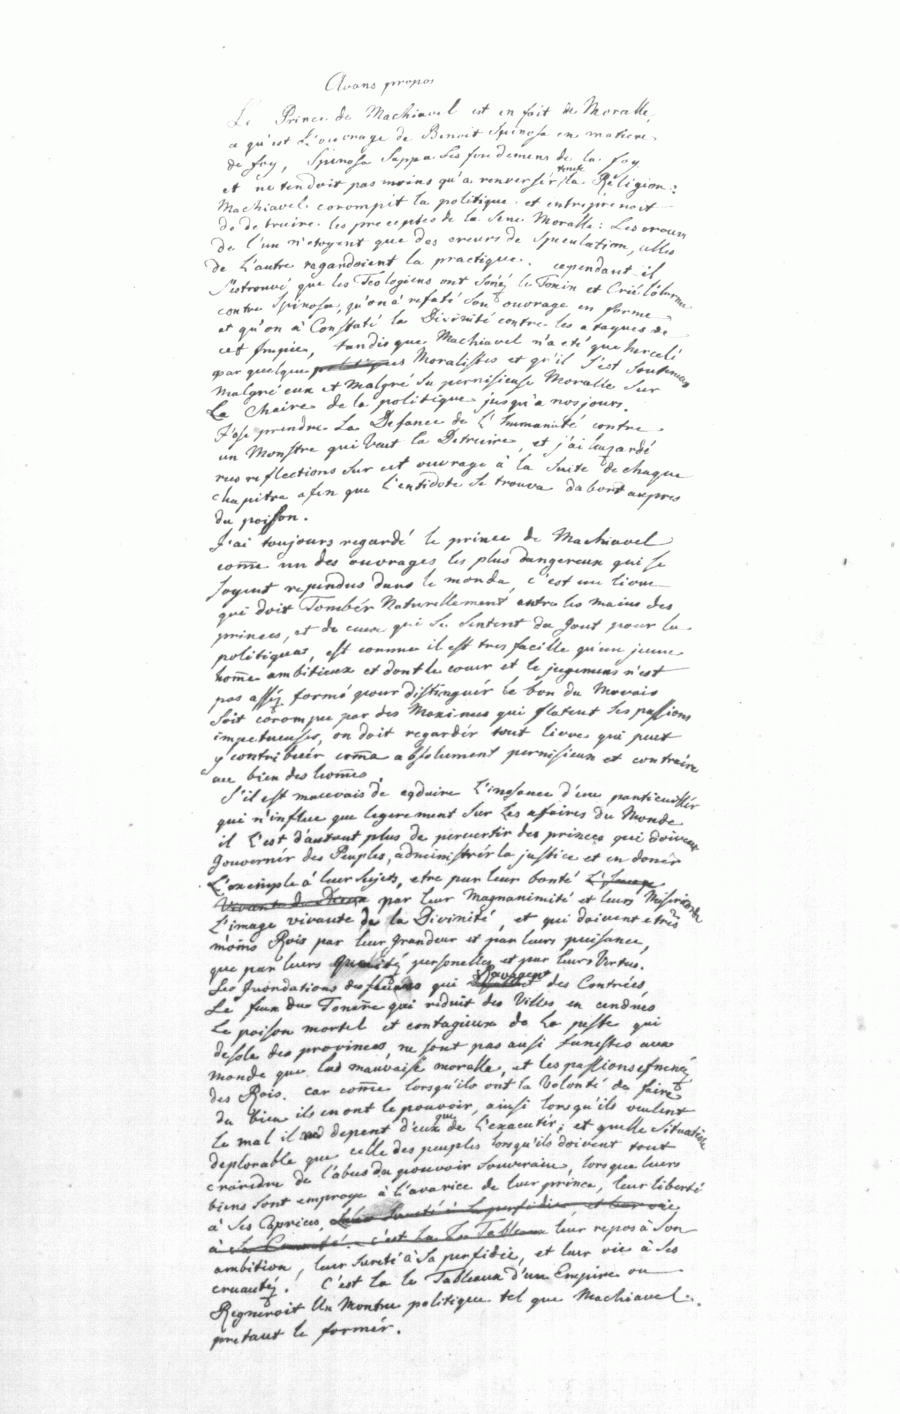 Avans propos
Le Prince de Machiavel est en fait de Moralle
ce qu'est L'ouvrage de Benoit Spinosa en matiere
de foy, Spinosa Sappa Les fondemens de la foy
et ne tendoit pas moins qu'a renversér toute la Religion;
Machiavel corompit la politique et entreprenoit
de detruire les preceptes de la sene Moralle: Les ereurs
de l'un n'etoyent que des ereurs de Speculation, celles
de L'autre regardoient la practique. cependant il
s'est trouvé que les Teologiens ont Sonéz le Toxin et Crié l'alarme
contre Spinosa, qu'on a refuté Son ouvrage en forme
et qu'on a Constaté la Divinité contre les ataques de
cet Impie, tandis que Machiavel n'a eté que harcelé
par quelques Moralistes et qu'il S'est Soutenu
malgré eux et malgré Sa pernisieuse Moralle Sur
La Chaire de la politique jusqu'a nos jours.
J'ose prendre La Defance de L'humanité contre
un Monstre qui Veut la Detruire, et j'ai hazardé
mes reflections Sur cet ouvrage à la Suite de chaque
chapitre afin que l'entidote Se trouva dabort aupres
du poison.
J'ai toujours regardé le prince de Machiavel
come un des ouvrages les plus dangereux qui se
soyent rependus dans le monde, c'est un livre
qui doit Tombér Naturellement entre les mains des
princes, et de ceux qui Se Sentent du Gout pour la
politique, est comme il est tres facille qu'un jeune
home ambitieux et dont le cœur et le jugement n'est
pas asséz formé pour distinguér le bon du Mauvais
soit corompu par des Maximes qui flatent Ses passions
impetueuses, on doit regardér tout livre qui peut
y contribuér come absolument pernisieux et contraire
au bien des homes.
S'il est mauvais de seduire L'inosance d'un particuillér
qui n'influe que legerement Sur Les afaires du Monde
il L'est d'autant plus de pervertir des princes qui doivent
gouvernér des Peuples, administrér la justice et en donér
L'exemple à leur Sujets, etre par leur bonté L'Image
Vivante de Dieux par leur Magnanimité et leurs Misericorde
L'image vivante de la Divinité, et qui doivent etres
moins Rois par leur grandeur et par leurs puisance,
que par leurs qualitéz personelles et par leurs Vertus.
Les Inondations des fleuves qui Ravagent des Contrées,
Le feux du Tonerre qui reduit des Villes en cendres
Le poison mortel et contagieux de La peste qui
desole des provinces, ne sont pas ausi funestes au
monde que la mauvaise moralle, et les passions efrenéz
des Rois. car come lorsqu'ils ont la Volonté de faire
du bien ils en ont le pouvoir, ainsi lorsqu'ils veulent
Le mal il ne depent d'eux que de L'executér; et quelle Situation
deplorable que celle des peuples lorsqu'ils doivent tout
craindre de l'abus du pouvoir Souverain, lorsque leurs
biens sont en proye à l'avarice de leur prince, leur liberté
à Ses Caprices, leur Sureté à Sa perfidie, et leur vie
à Sa Cruauté. c'est La Le Tableau leur repos à Son
ambition, leur Sureté à Sa perfidie, et leur vie à Ses
cruautéz! C'est La le Tableaux d'un Empire ou
Regneroit Un Monstre politique tel que Machiavel
pretant le formér.